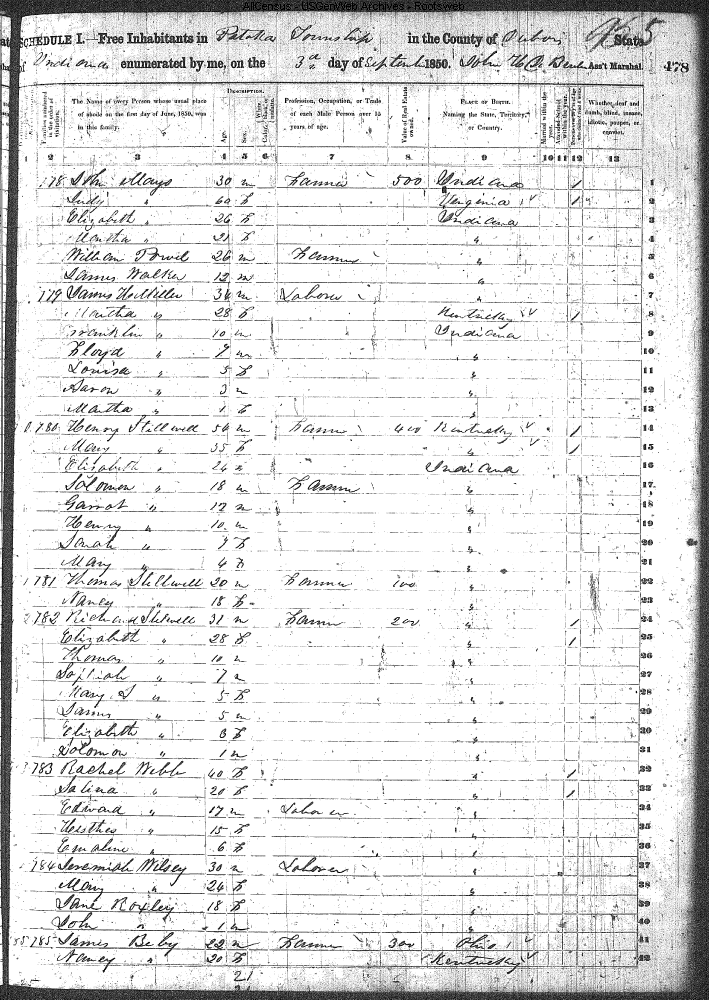 AllCensus - USGenWeb Archives - Rootsweb
SCHEDULE I. Free Inhabitants in Patoka Township in the County of Dubois State 5
of Indiana enumerated by me, on the 3d day of September 1850. John Ass't Marshal. 478
The Name of every Person whose usual place of abode on the first day of June, 1850, was in this family.
DESCRIPTION.
Age.
Sex.
Profession, Occupation, or Trade of each Male Person over 15 years of age.
Value of Real Estate owned.
PLACE OF BIRTH. Naming the State, Territory, or Country.
Married within the year.
Attended School within the year.
Whether deaf and dumb, blind, insane, idiotic, pauper, or convict.
2 3 4 5 6 7 8 9 10 11 12 13
778 John Mays 30 m Farmer 500 Indiana 1 1
Judy " 60 f Virginia 1 2
Elizabeth " 26 f Indiana 3
Martha " 21 f " 4
William 26 m Farmer " 5
James Walker 12 m " 6
779 James 36 m Laborer " 7
Martha " 28 f Kentucky 1 8
Franklin " 10 m Indiana 9
Floyd " 7 m " 10
Louisa " 5 f " 11
Aaron " 3 m " 12
Martha " 1 f " 13
780 Henry Stillwell 54 m Farmer 400 Kentucky 1 14
Mary " 35 f " 1 15
Elizabeth " 24 Indiana 16
Solomon " 18 m Farmer " 17
Garrot " 12 m " 18
Henry " 10 m " 19
Sarah " 7 f " 20
Mary " 4 f " 21
781 Thomas Stillwell 20 m Farmer 100 " 22
Nancy " 18 f " 23
782 Richard Stilwell 31 m Farmer 200 " 1 24
Elizabeth " 28 f " 1 25
Thomas " 10 m " 26
" 7 m " 27
Mary " 5 f " 28
James " 5 m " 29
Elizabeth " 3 f " 30
Solomon " 1 m " 31
783 Rachel Webb 40 f " 1 32
Salina " 20 f " 1 33
Edward " 17 m Laborer " 34
" 15 f " 35
Emaline " 6 f " 36
784 Jeremiah Wilsey 30 m Laborer " 37
Mary " 24 f " 38
Jane Roxley 18 f " 39
John " 1 m " 40
785 James 22 m Farmer 300 Ohio 41
Nancy " 20 f Kentucky 42
21